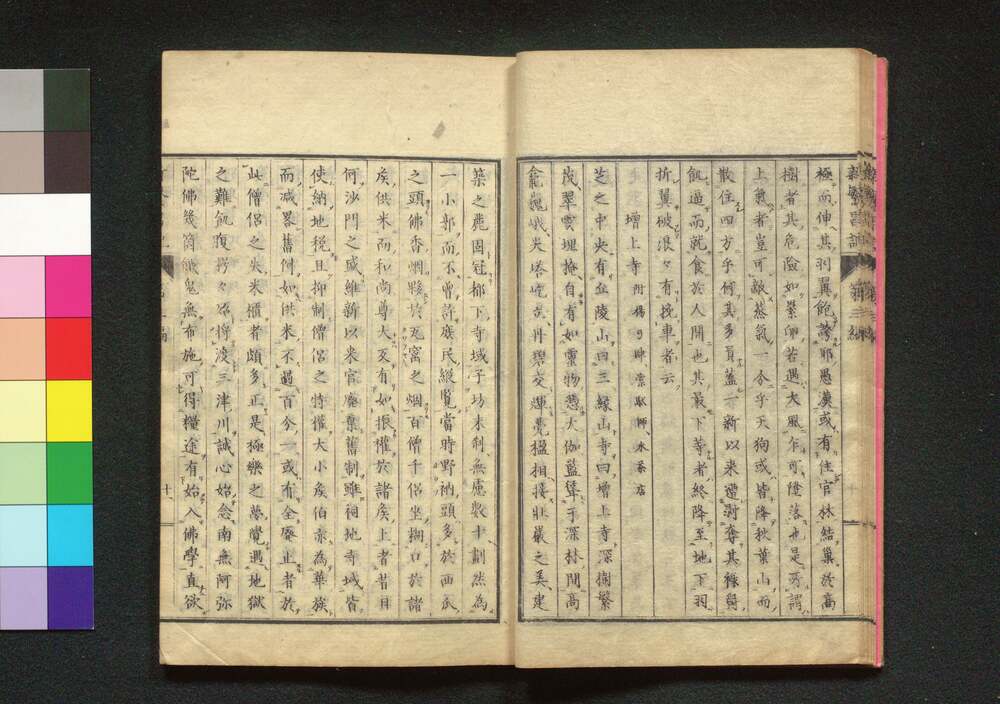 極而伸其羽翼飽誇耶愚漢或有住官林結巢於高
樹者其危險如累卵若遇大風乍可墮落也是所謂
上氣者豈可厭蒸氣一令乎天狗或皆降秋葉山而
散住四方乎何其多員蓋一新以來遭剥奪其祿
飢逼而就食於人間也其最下等者終降至地下羽
折翼破浪々有挽車者云
增上寺 附楊弓時 師水茶店
芝之中央有丘陵山曰三緣山寺曰增上寺深樹繁
茂翠雲埋掩自有如靈物憑大伽藍聳于深林間高
龕巍峨尖塔屹立丹碧交輝甍楹相接壯儀之美建
築之麗固冠都下寺域子坊末刹無慮數十劃然為
一小郭而不曾許庶民縱覽當時野衲頭多於西瓜
之頭佛香烟黟於瓦窰之烟百僧千侶坐糊口於諸
矦供米而和尚尊大又有如振權於諸矦上者昔日
何沙門之盛維新以來官廢棄舊制雖祠地寺域皆
使納地税且抑制僧侶之特權大小矦伯赤為華族
而减畧舊例如供米不過百今一或有全廢止者於
此僧侶之失米櫃者頗多正是極樂之夢覺遇地獄
之難飢腹愕々將渡三津川誠心始念南無阿弥
陀佛幾箇餓鬼無布施可得糧途有始入佛學直欲
十一